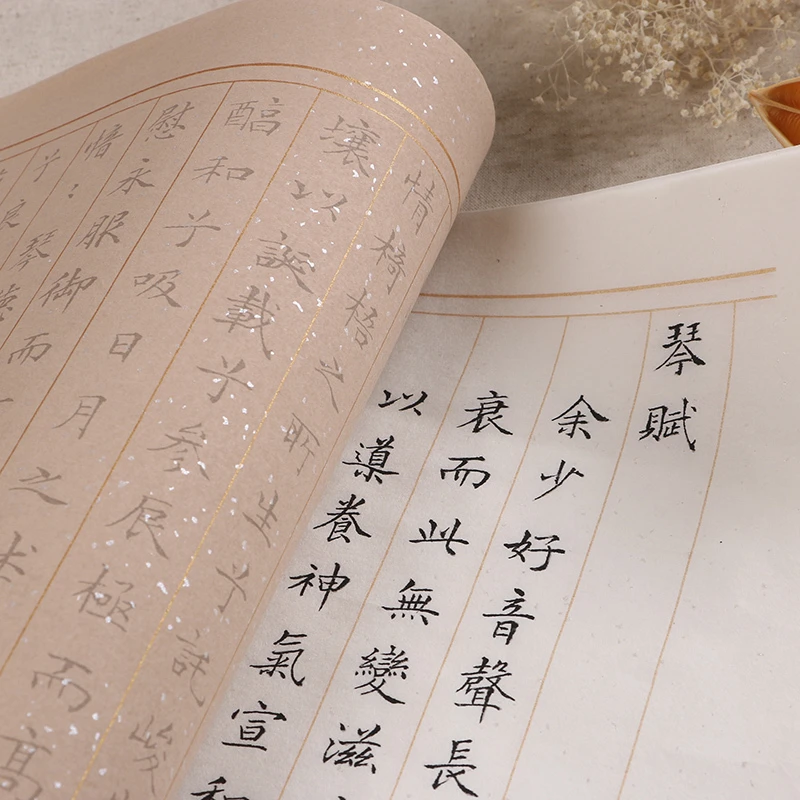 琴賦
余少好音聲長
衰而此無變滋
以導養神氣宣和
情椅梧之所生兮託峻
壤以誕載兮參辰極而高
醕和兮吸日月之
慰永服御而
愔：琴
兮良